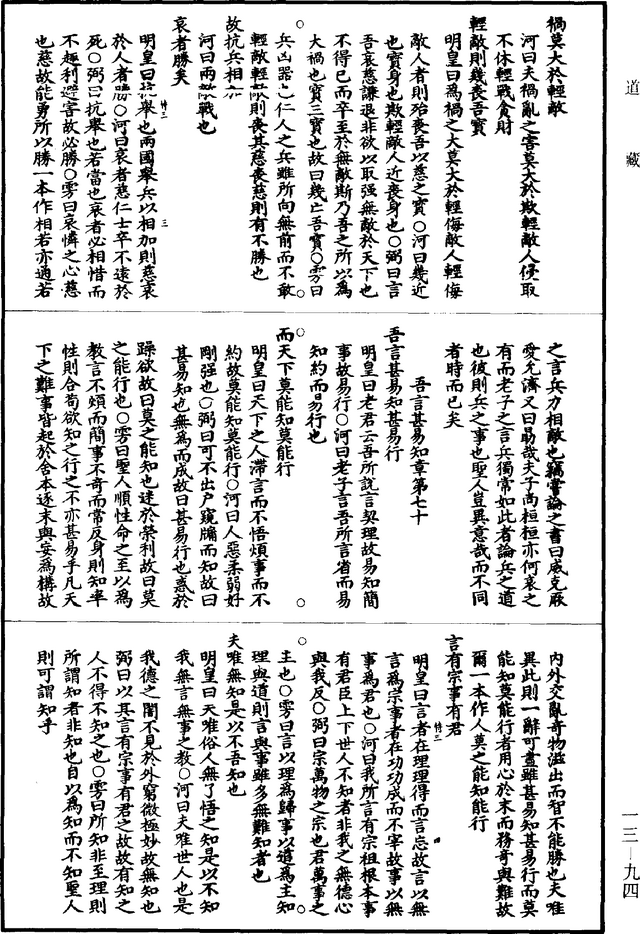 道藏
禍莫大於輕敵
河曰夫禍亂之害莫大於欺輕敵人侵取
不休輕戰貪財
輕敵則幾喪吾寶
明皇曰為禍之大莫大於輕侮敵人輕侮
敵人者則殆喪吾以慈之寶〇河曰幾近
也寶身也欺輕敵人近喪身也〇弼曰言
吾哀慈謙退非欲以取强無敵於天下也
不得已而卒至於無敵斯乃吾之所以為
大禍也寶三寶也故曰幾亡吾寶〇雱曰
兵凶器也仁人之兵雖所向無前而不敢
輕敵輕敵則喪其慈喪慈則有不勝也
故抗兵相加
河曰兩敵戰也
哀者勝矣
明皇曰抗舉也兩國舉兵以相加則慈哀
於人者勝〇河曰哀者慈仁士卒不遠於
死〇弼曰抗舉也若當也哀者必相惜而
不趣利避害故必勝〇雱曰哀憐之心慈
也慈故能勇所以勝一本作相若亦通若
之言兵力相敵也竊嘗論之書曰威克厥
愛允濟又曰勗哉夫子尚桓桓亦何哀之
有而老子之言兵獨常如此者論兵之道
也彼則兵之事也聖人豈異意哉而不同
者時而已矣
吾言甚易知章第七十
吾言甚易知甚易行
明皇曰老君云吾所說言契理故易知簡
事故易行〇河曰老子言吾所言省而易
知約而易行也
而天下莫能知莫能行
明皇曰天下之人滯言而不悟煩事而不
約故莫能知莫能行〇河曰人惡柔弱好
剛强也〇弼曰可不出户窺牖而知故曰
甚易知也無為而成故曰甚易行也惑於
躁欲故曰莫之能知也迷於榮利故曰莫
之能行也〇雱曰聖人順性命之至以為
教言不煩而簡事不奇而常反身則知率
性則合苟欲知之行之不亦甚易乎凡天
下之難事皆起於舍本逐末與妄為構故
內外交亂奇物滋出而智不能勝也夫唯
異此則一辭可盡雖甚易知甚易行而莫
能知莫能行者用心於末而務奇與難故
爾一本作人莫之能知能行
言有宗事有君
明皇曰言者在理理得而言忘故言以無
言為宗事者在功功成而不宰故事以無
事為君也〇河曰我所言有宗祖根本事
有君臣上下世人不知者非我之無德心
與我反〇弼曰宗萬物之宗也君萬事之
主也〇雱曰言以理為歸事以道為主知
理與道則言與事雖多無難知者也
夫唯無知是以不吾知也
明皇曰夫唯俗人無了悟之知是以不知
我無言無事之教〇河曰夫唯世人也是
我德之闇不見於外窮微極妙故無知也
弼曰以其言有宗事有君之故故有知之
人不得不知之也〇雱曰所知非至理則
所謂知者非知也自以為知而不知聖人
則可謂知乎
一三—九四